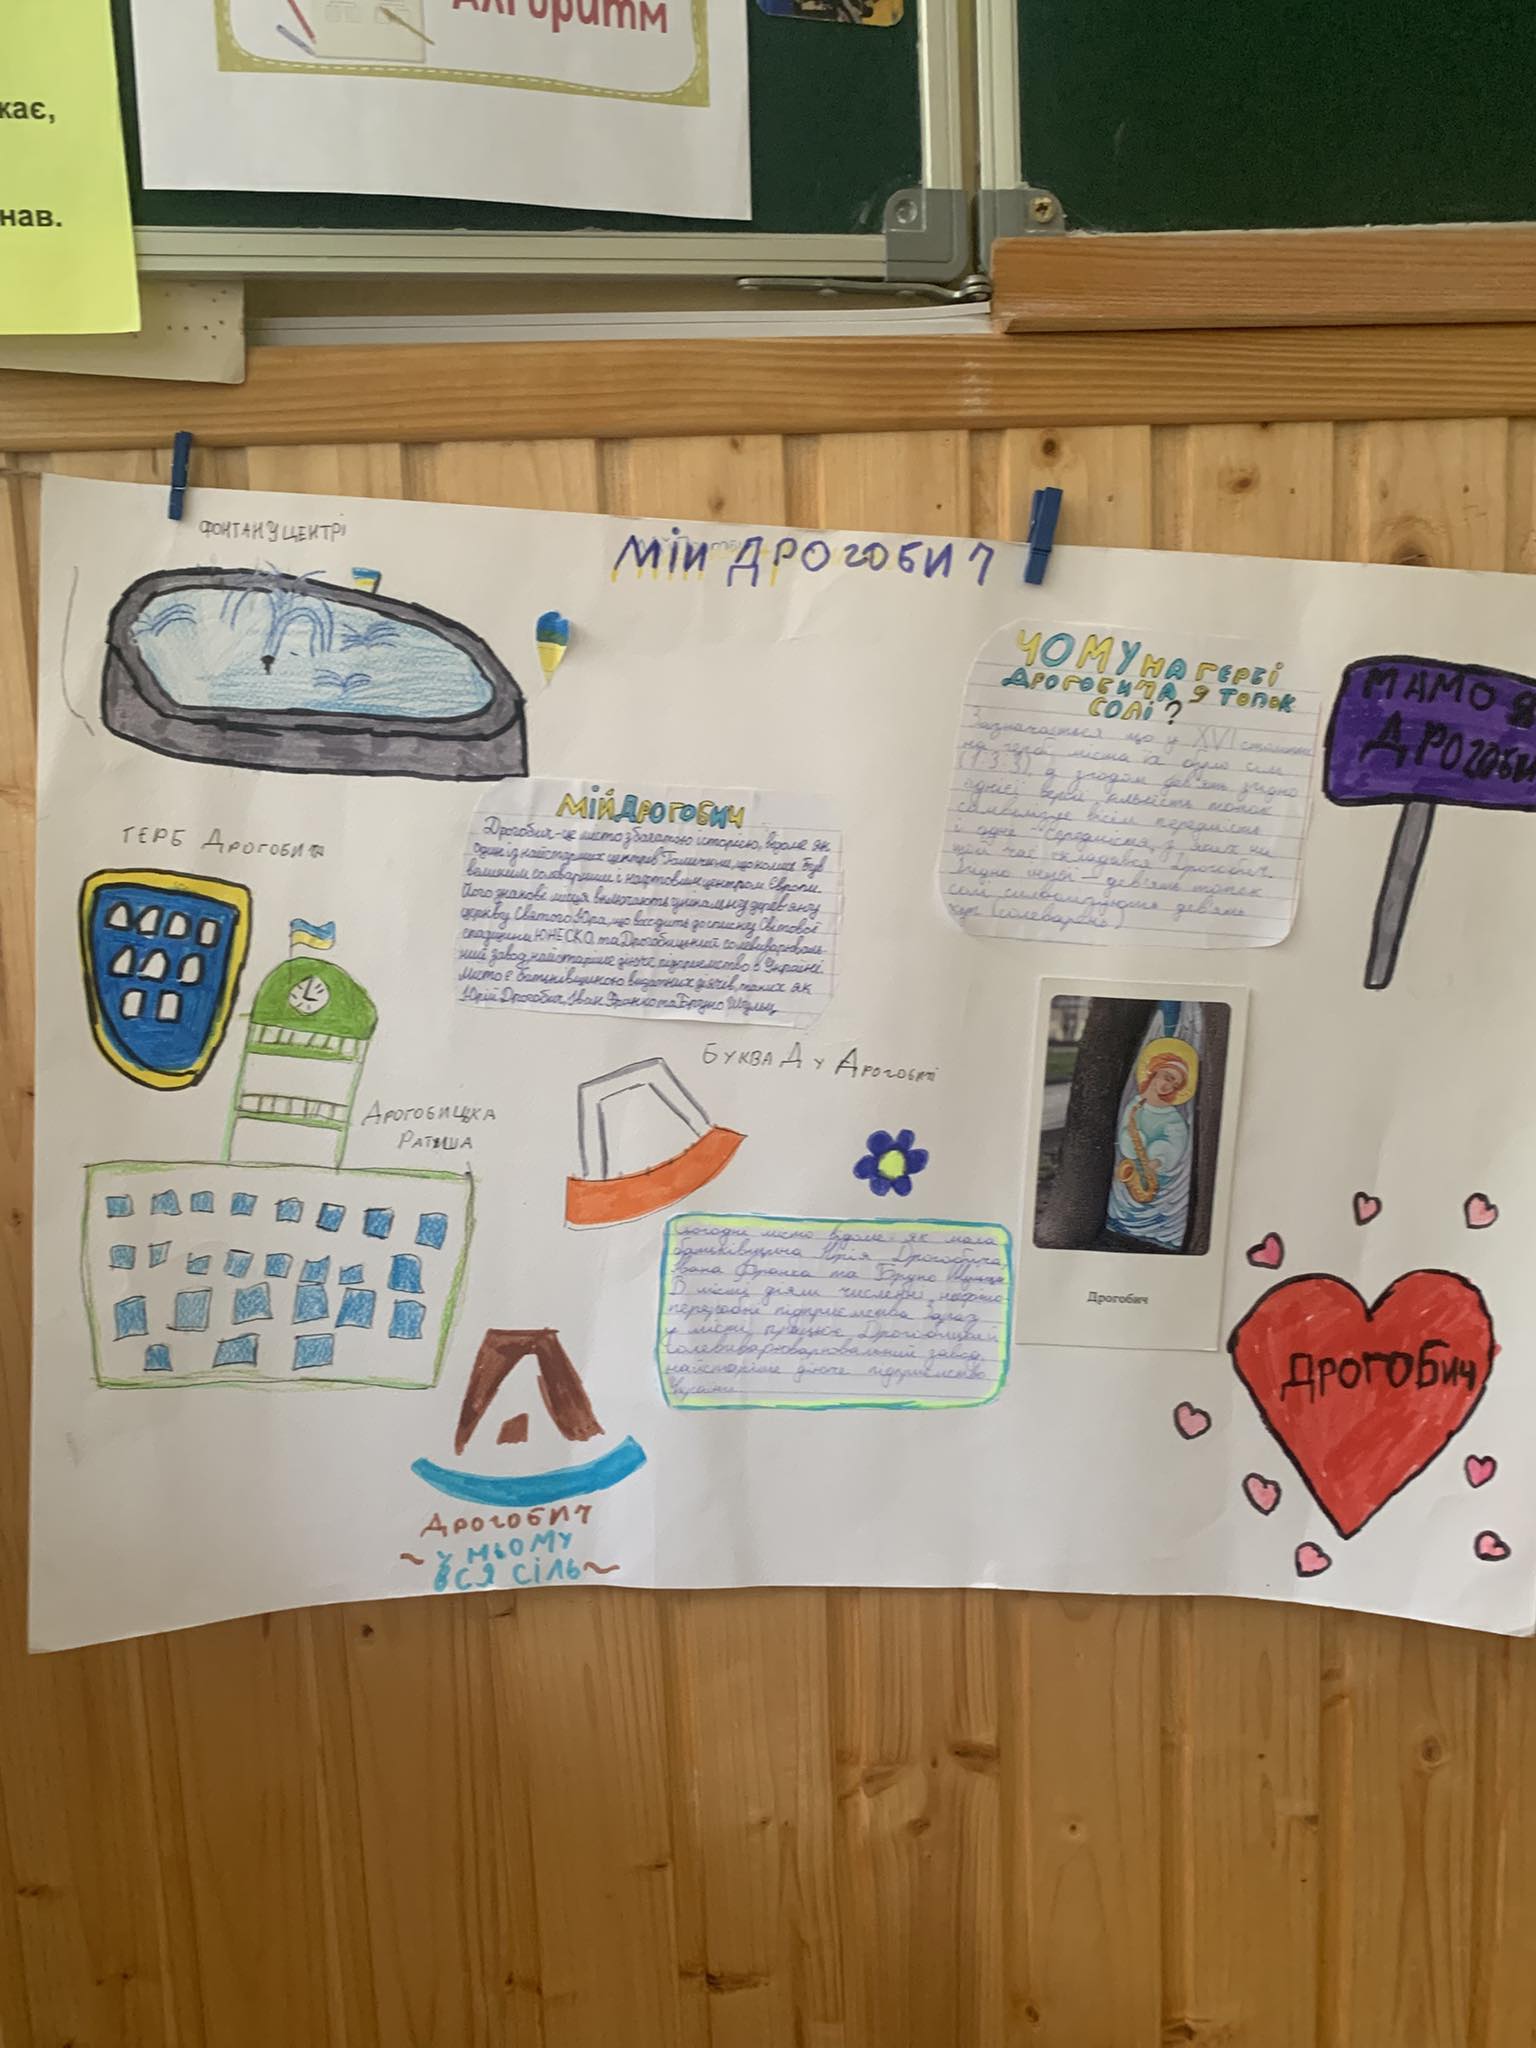 Алгоритм
кає,
нав.
ФОНТАН У ЦЕНТРІ
МІЙ ДРОГОБИЧ
ЧОМУ НА ГЕРБІ
ДРОГОБИЧА 9 ТОПОК
СОЛІ?
Зазначається що у XVI столітті
на гербі міста їх було сім
(1.3.3), а згодом дев'ять згідно
однієї версії кількість топок
символізує вісім передмість
і одне середмістя, з яких на
той час складався Дрогобич.
Згідно іншої – дев'ять топок
солі символізують дев'ять
(солеварень)
МАМО Я
ДРОГОБИ
МІЙ ДРОГОБИЧ
Дрогобич – це місто з багатою історією, відоме як
один із найстаріших центрів Галичини, що колись був
великим солеварним і нафтовим центром Європи.
Його знакові місця включають унікальну дерев'яну
церкву Святого Юра, що входить до списку Світової
спадщини ЮНЕСКО та Дрогобицький солевиварюваль
ний завод, найстаріше діюче підприємство в Україні.
Місто є батьківщиною видатних діячів, таких як
Юрій Дрогобич, Іван Франко та Бруно Шульц
ГЕРБ ДРОГОБИЧА
ДРОГОБИЦЬКА
РАТУША
БУКВА Д У ДРОГОБИЧІ
Сьогодні місто відоме як мала
батьківщина Юрія Дрогобича
Івана Франка та Бруно Шульца
В місті діяли численні нафто
переробні підприємства Зараз
у місті працює Дрогобицький
солевиварювальний завод,
найстаріше діюче підприємство
України
Дрогобич
ДРОГОБИЧ
ДРОГОБИЧ
~ У НЬОМУ
ВСЯ СІЛЬ ~